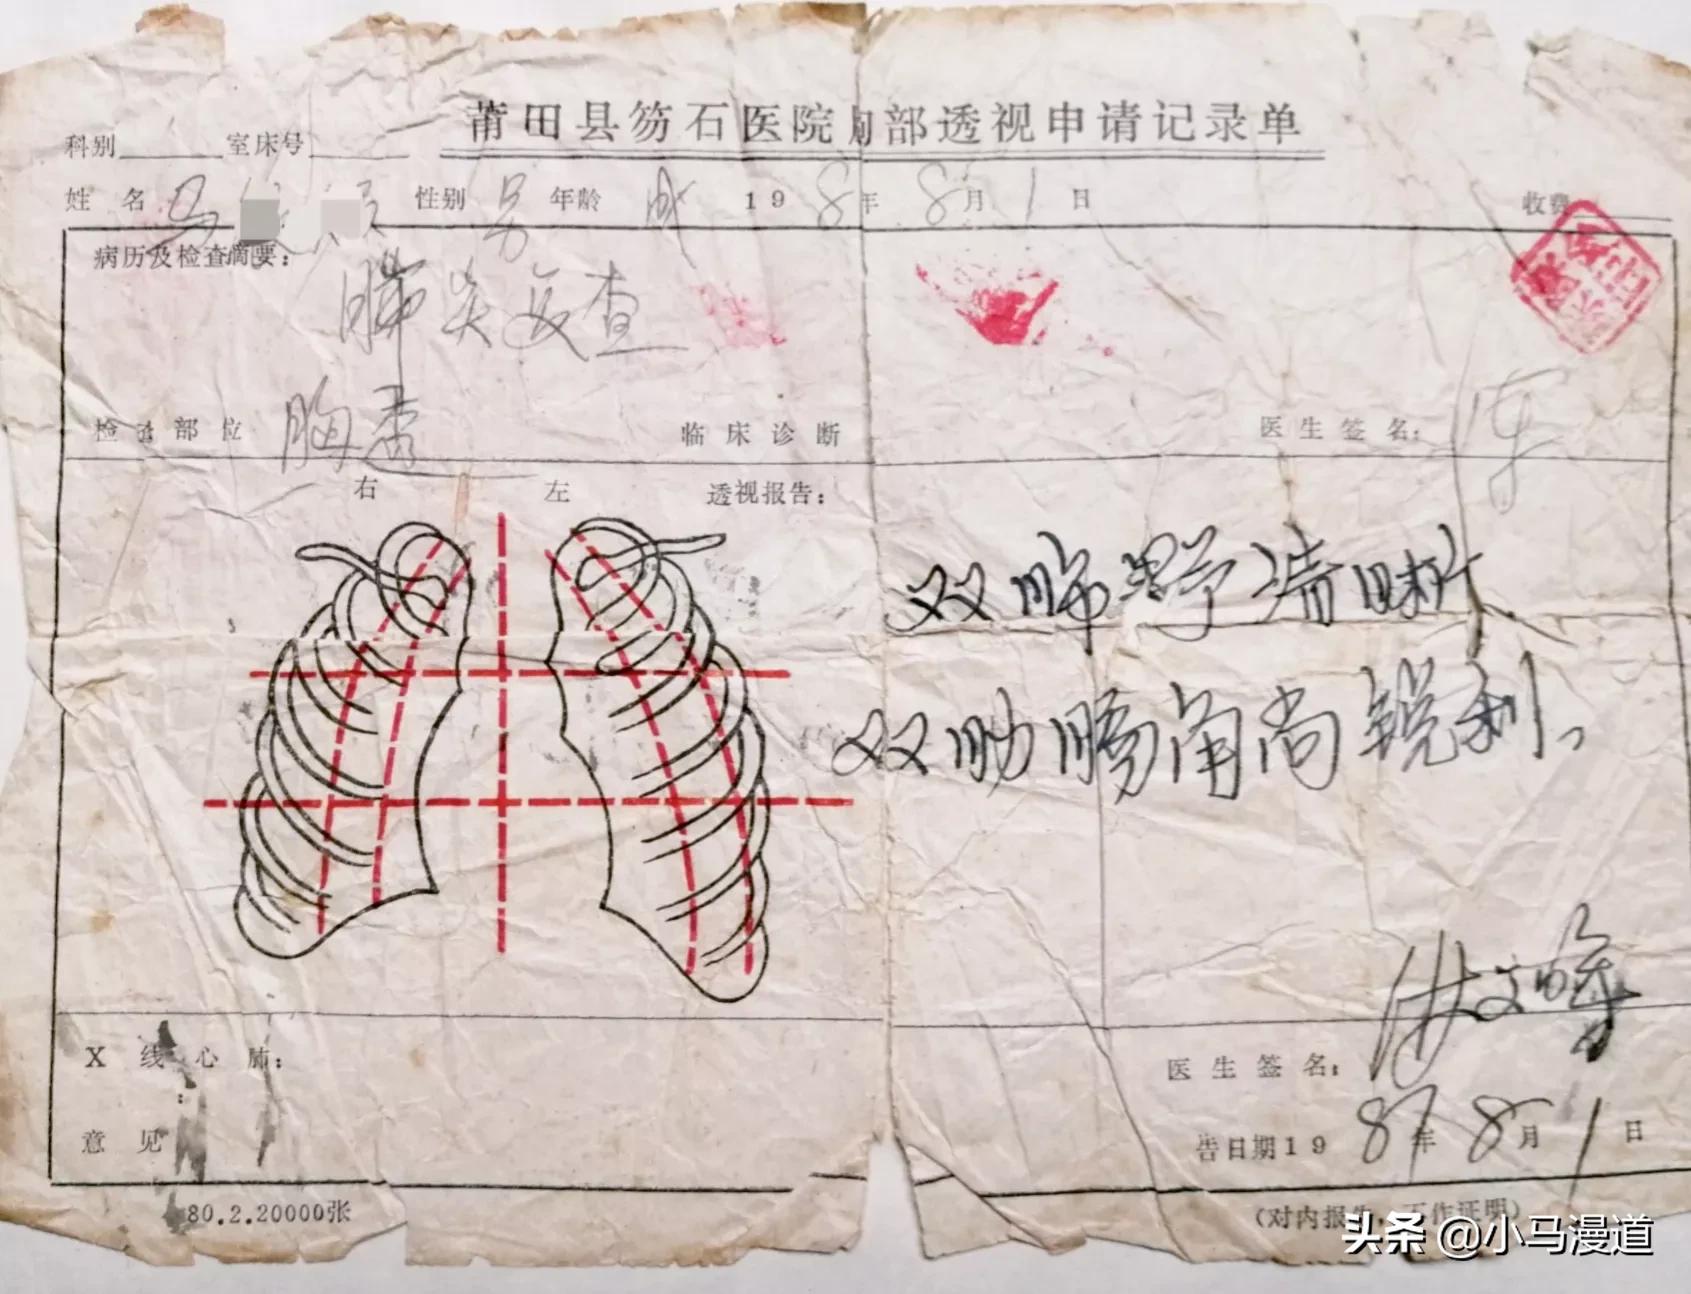 莆田县笏石医院胸部透视申请记录单
科别 室床号
姓 名 马 性别 男 年龄 成 198 年 8月1日 收费
病历及检查摘要:
肺炎复查
检查部位 胸透 临床诊断 医生签名:
右 左 透视报告:
双肺野清晰
双肋膈角尚锐利。
X 线心肺:
医生签名:
告日期1987年8月1日
意 见
80.2.20000张
(对内报告,工作证明)
头条 @小马漫道